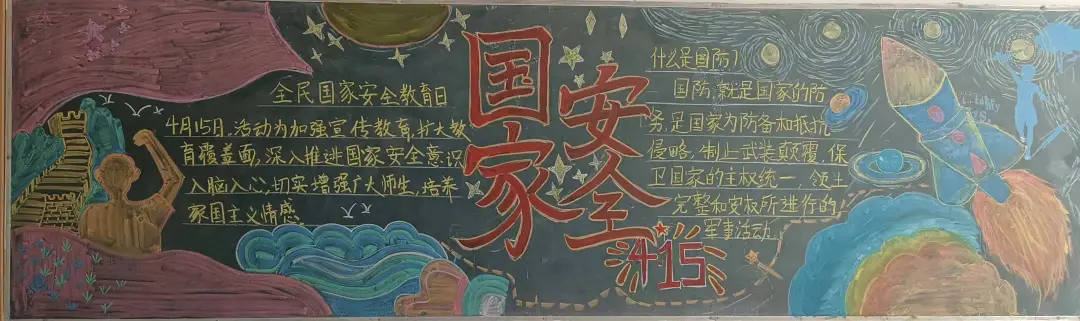 全民国家安全教育日
4月15日，活动为加强宣传教育，扩大教
育覆盖面，深入推进国家安全意识
入脑入心，切实增强广大师生，培养
家国主义情感
国家
安全
4.15
什么是国防？
国防，就是国家的防
务，是国家为防备和抵抗
侵略，制止武装颠覆，保
卫国家的主权统一，领土
完整和安权所进作的
军事活动。